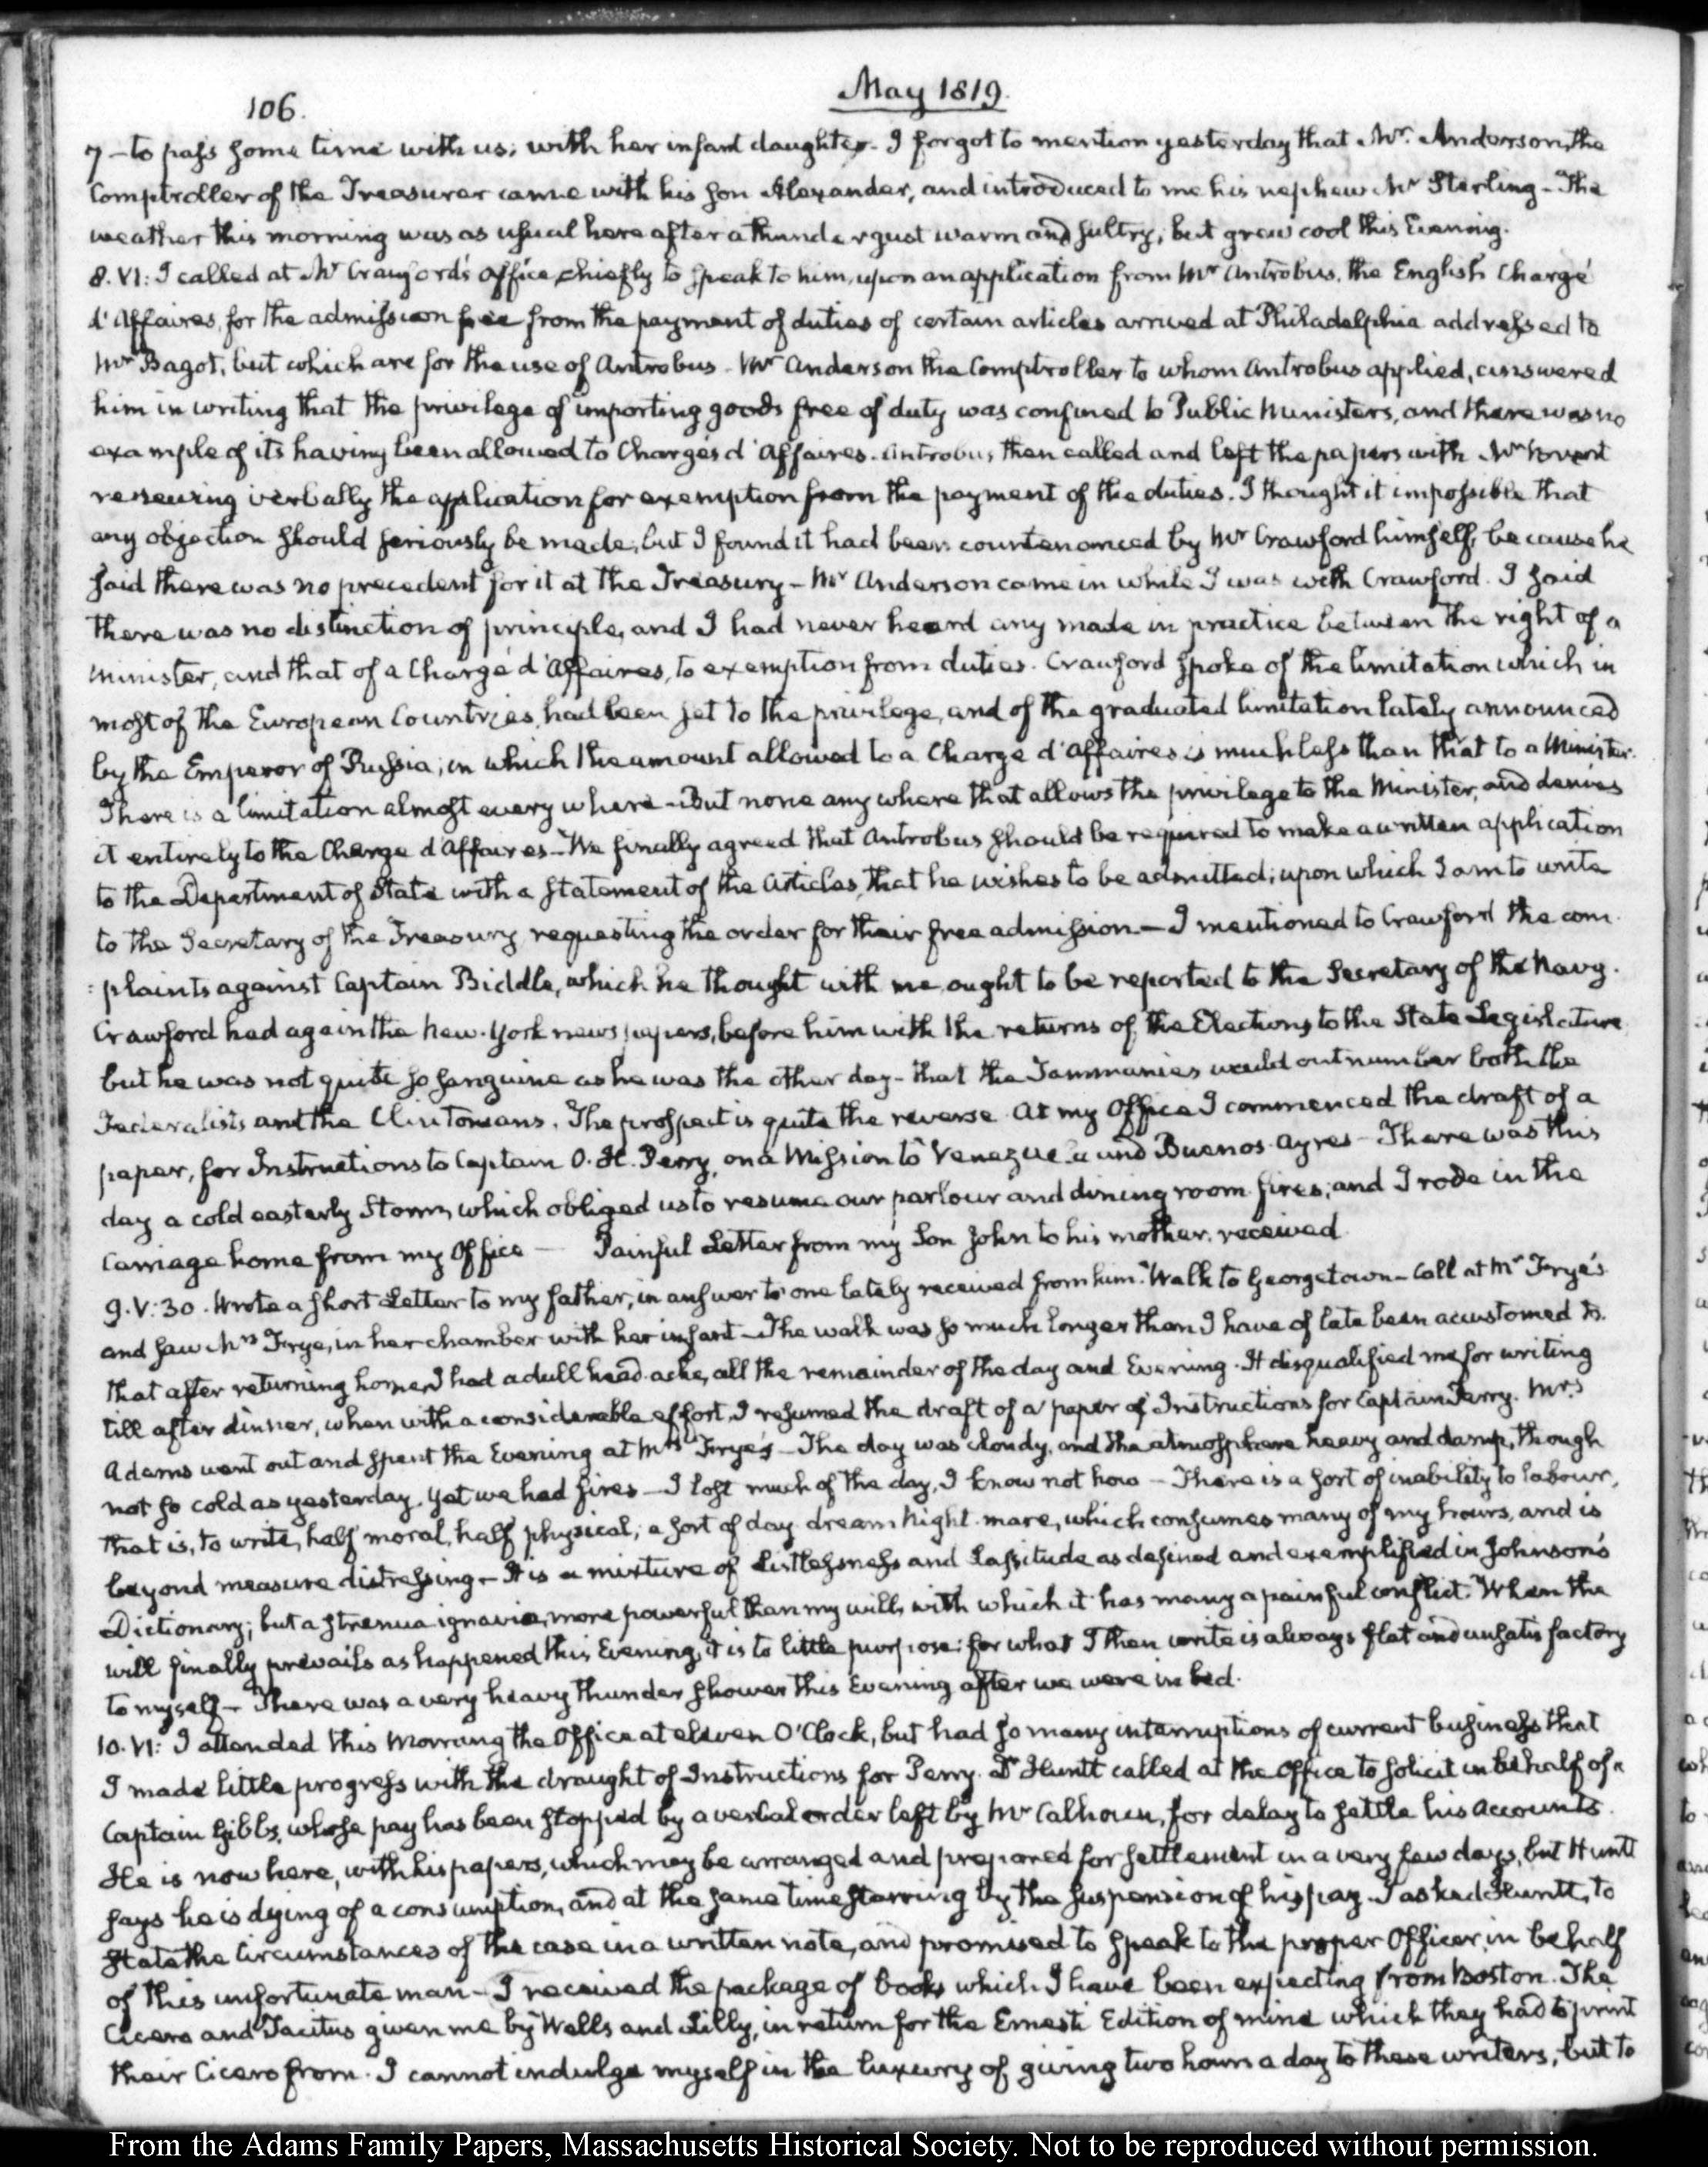 106.
May 1819.
7 – to pass some time with us; with her infant daughter – I forgot to mention yesterday that Mr. Anderson, the
Comptroller of the Treasurer came with his son Alexander, and introduced to me his nephew Mr Sterling – The
weather this morning was as usual here after a thunder gust warm and sultry, but grew cool this Evening.
8. VI: I called at Mr Crawford's office chiefly to speak to him, upon an application from Mr Antrobus, the English Chargé
d'Affaires, for the admission free from the payment of duties of certain articles arrived at Philadelphia addressed to
Mr Bagot, but which are for the use of Antrobus – Mr Anderson the Comptroller to whom Antrobus applied, answered
him in writing that the privilege of importing goods free of duty was confined to Public Ministers, and there was no
example of its having been allowed to Chargés d'Affaires. Antrobus then called and left the papers with Mr Brent
renewing verbally the application for exemption from the payment of the duties. I thought it impossible that
any objection should seriously be made, but I found it had been countenanced by Mr Crawford himself, because he
said there was no precedent for it at the Treasury – Mr Anderson came in while I was with Crawford. I said
there was no distinction of principle, and I had never heard any made in practice between the right of a
Minister, and that of a Chargé d'Affaires, to exemption from duties. Crawford spoke of the limitation which in
most of the European Countries, had been set to the privilege, and of the graduated limitation lately announced
by the Emperor of Russia; in which the amount allowed to a Charge d'Affaires is much less than that to a Minister.
There is a limitation almost every where – But none any where that allows the privilege to the Minister, and denies
it entirely to the Charge d'Affaires – We finally agreed that Antrobus should be required to make a written application
to the Department of State with a statement of the Articles, that he wishes to be admitted; upon which I am to write
to the Secretary of the Treasury requesting the order for their free admission – I mentioned to Crawford the com
:plaints against Captain Biddle, which he thought with me, ought to be reported to the Secretary of the Navy.
Crawford had again the New-York newspapers, before him with the returns of the Elections to the State Legislature
but he was not quite so sanguine as he was the other day – that the Tammanies would outnumber both the
Federalists and the Clintonians. The prospect is quite the reverse. At my Office I commenced the draft of a
paper, for Instructions to Captain O. H. Perry, on a Mission to Venezuela and Buenos-Ayres – There was this
day a cold easterly Storm, which obliged us to resume our parlour and dining room fires; and I rode in the
Carriage home from my Office – Painful Letter from my Son John to his mother, received.
9. V:30. Wrote a short Letter to my father, in answer to one lately received from him. Walk to Georgetown – Call at Mr Frye's
and saw Mrs Frye, in her chamber with her infant – The walk was so much longer than I have of late been accustomed to.
that after returning home, I had a dull head-ache, all the remainder of the day and Evening. It disqualified me for writing
till after dinner, when with a considerable effort, I resumed the draft of a paper of Instructions for Captain Perry. Mrs
Adams went out and spent the Evening at Mrs Frye's – The day was cloudy, and the atmosphere heavy and damp, though
not so cold as yesterday. Yet we had fires – I lost much of the day, I know not how – There is a sort of inability to labour,
that is, to write, half moral, half physical; a sort of day-dream Night-mare, which consumes many of my hours, and is
beyond measure distressing – It is a mixture of Listlessness and Lassitude as defined and exemplified in Johnson's
Dictionary; but a strenua ignavia, more powerful than my will, with which it has many a painful conflict. When the
will finally prevails as happened this Evening, it is to little purpose: for what I then write is always flat and unsatisfactory
to myself – There was a very heavy thunder shower this Evening after we were in bed.
10. VI: I attended this Morning the Office at eleven O'Clock, but had so many interruptions of current business that
I made little progress with the draught of Instructions for Perry. Dr Huntt called at the Office to solicit in behalf of a
Captain Gibbs, whose pay has been stopped by a verbal order left by Mr Calhoun, for delay to settle his Accounts.
He is now here, with his papers, which may be arranged and prepared for settlement in a very few days, but Huntt
says he is dying of a consumption, and at the same time starving by the suspension of his pay. I asked Huntt, to
state the Circumstances of the case in a written note, and promised to speak to the proper Officer, in behalf
of this unfortunate man – I received the package of books which I have been expecting from Boston. The
Cicero and Tacitus given me by Wells and Lilly, in return for the Ernesti Edition of mine which they had to print
their Cicero from. I cannot indulge myself in the luxury of giving two hours a day to these writers; but to
From the Adams Family Papers, Massachusetts Historical Society. Not to be reproduced without permission.